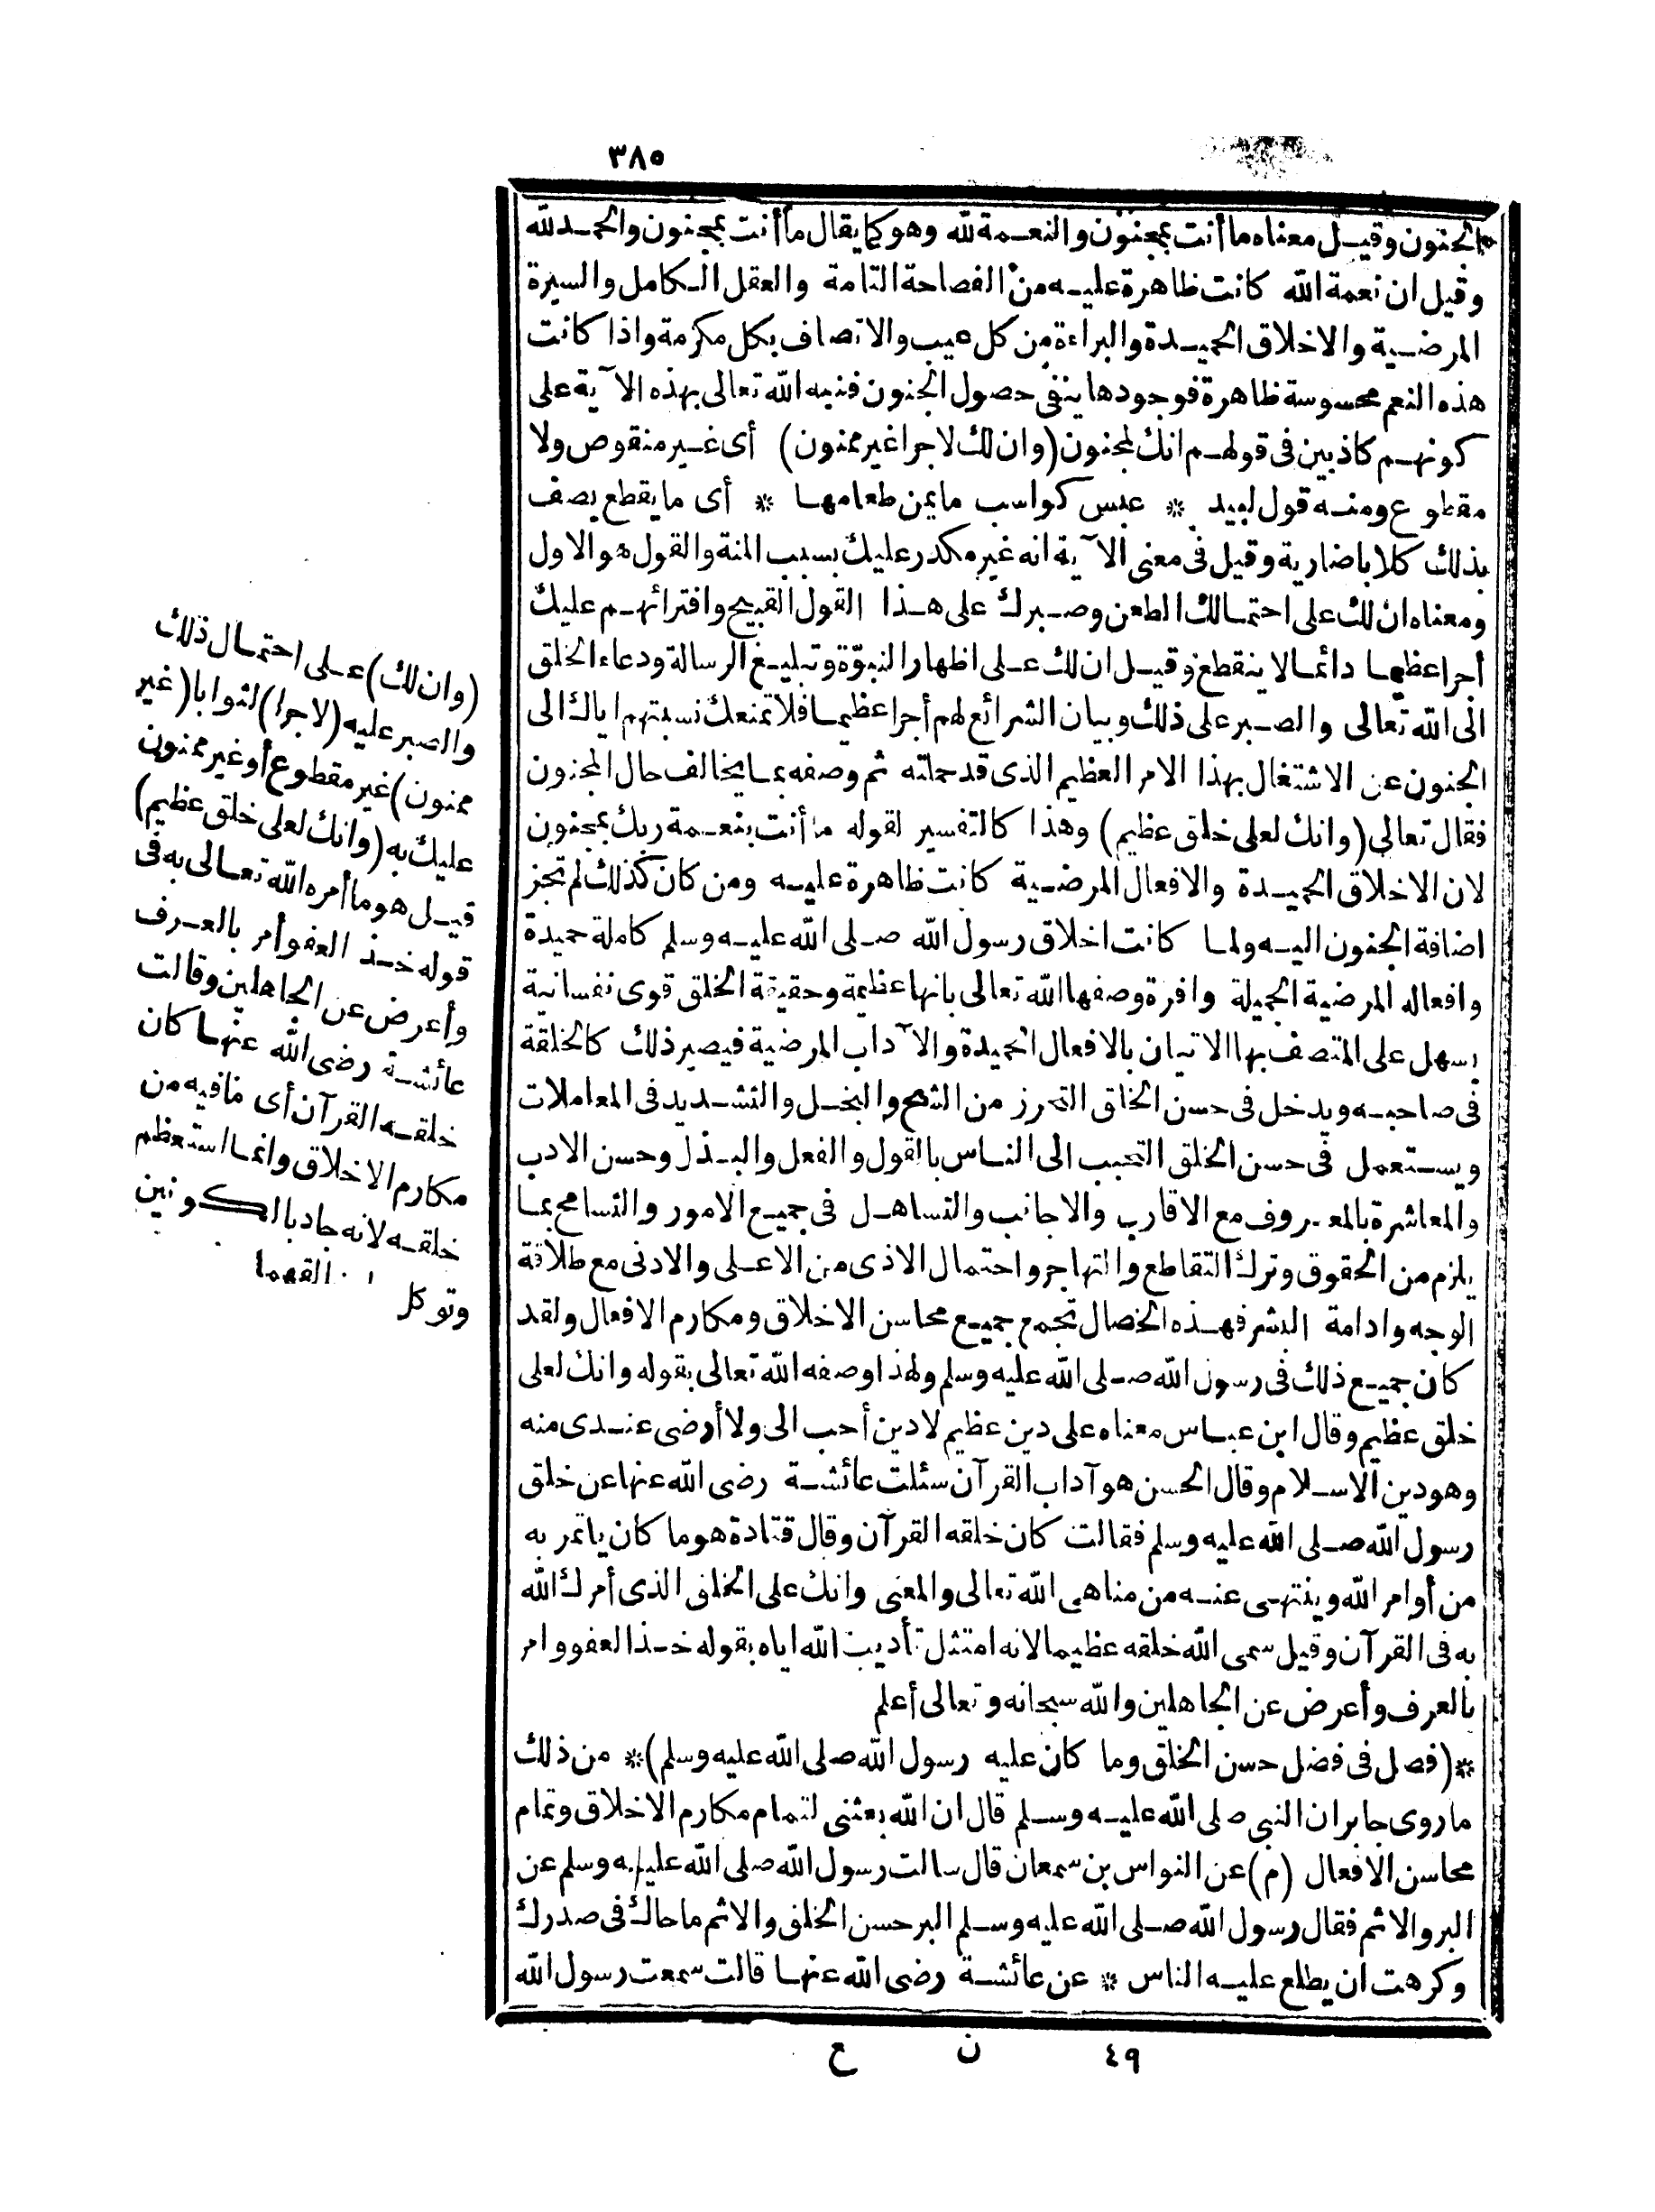 ٣٨٥
الجنون وقيل معناه ما أنت بمجنون والنعمة لله وهو كما يقال ما أنت بمجنون والحمد لله
وقيل ان نعمة الله كانت ظاهرة عليه من الفصاحة التامة والعقل الكامل والسيرة
المرضية والاخلاق الحميدة والبراءة من كل عيب والاتصاف بكل مكرمة واذا كانت
هذه النعم محسوسة ظاهرة فوجودها ينفى حصول الجنون فنبه الله تعالى بهذه الآية على
كونهم كاذبين فى قولهم انك لمجنون (وان لك لاجرا غير ممنون) أى غير منقوص ولا
مقطوع ومنه قول لبيد * عبس كواسب ما يمن طعامها * أى ما يقطع يصف
بذلك كلابا ضارية وقيل فى معنى الآية انه غير مكدر عليك بسبب المنة والقول هو الاول
ومعناه ان لك على احتمالك الطعن وصبرك على هذا القول القبيح وافترائهم عليك
أجرا عظيما دائما لا ينقطع وقيل ان لك على اظهار النبوّة وتبليغ الرسالة ودعاء الخلق
الى الله تعالى والصبر على ذلك وبيان الشرائع لهم أجرا عظيما فلا تمنعك نسبتهم اياك الى
الجنون عن الاشتغال بهذا الامر العظيم الذى قد حملته ثم وصفه بما يخالف حال المجنون
فقال تعالى (وانك لعلى خلق عظيم) وهذا كالتفسير لقوله ما أنت بنعمة ربك بمجنون
لان الاخلاق الحميدة والافعال المرضية كانت ظاهرة عليه ومن كان كذلك لم تجز
اضافة الجنون اليه ولما كانت اخلاق رسول الله صلى الله عليه وسلم كاملة حميدة
وافعاله المرضية الجميلة وافرة وصفها الله تعالى بانها عظيمة وحقيقة الخلق قوى نفسانية
يسهل على المتصف بها الاتيان بالافعال الحميدة والآداب المرضية فيصير ذلك كالخلقة
فى صاحبه ويدخل فى حسن الخلق التحرز من الشح والبخل والتشديد فى المعاملات
ويستعمل فى حسن الخلق التحبب الى الناس بالقول والفعل والبذل وحسن الادب
والمعاشرة بالمعروف مع الاقارب والاجانب والتساهل فى جميع الامور والتسامح بما
يلزم من الحقوق وترك التقاطع والتهاجر واحتمال الاذى من الاعلى والادنى مع طلاقة
الوجه وادامة البشر فهذه الخصال تجمع جميع محاسن الاخلاق ومكارم الافعال ولقد
كان جميع ذلك فى رسول الله صلى الله عليه وسلم ولهذا وصفه الله تعالى بقوله وانك لعلى
خلق عظيم وقال ابن عباس معناه على دين عظيم لا دين أحب الى ولا أرضى عندى منه
وهو دين الاسلام وقال الحسن هو آداب القرآن سئلت عائشة رضى الله عنها عن خلق
رسول الله صلى الله عليه وسلم فقالت كان خلقه القرآن وقال قتادة هو ما كان ياتمر به
من أوامر الله وينتهى عنه من مناهى الله تعالى والمعنى وانك على الخلق الذى أمرك الله
به فى القرآن وقيل سمى الله خلقه عظيما لانه امتثل تأديب الله اياه بقوله خذ العفو وامر
بالعرف وأعرض عن الجاهلين والله سبحانه وتعالى أعلم
*(فصل فى فضل حسن الخلق وما كان عليه رسول الله صلى الله عليه وسلم)* من ذلك
ما روى جابر ان النبى صلى الله عليه وسلم قال ان الله بعثنى لتمام مكارم الاخلاق وتمام
محاسن الافعال (م) عن النواس بن سمعان قال سالت رسول الله صلى الله عليه وسلم عن
البر والاثم فقال رسول الله صلى الله عليه وسلم البر حسن الخلق والاثم ما حاك فى صدرك
وكرهت ان يطلع عليه الناس * عن عائشة رضى الله عنها قالت سمعت رسول الله
(وان لك) على احتمال ذلك
والصبر عليه (لاجرا) لثوابا (غير
ممنون) غير مقطوع أو غير ممنون
عليك به (وانك لعلى خلق عظيم)
قيل هو ما أمره الله تعالى به فى
قوله خذ العفو وأمر بالعرف
وأعرض عن الجاهلين وقالت
عائشة رضى الله عنها كان
خلقه القرآن أى ما فيه من
مكارم الاخلاق وانما استعظم
خلقه لانه جاد بالكونين
وتوكل
٤٩ ن ع